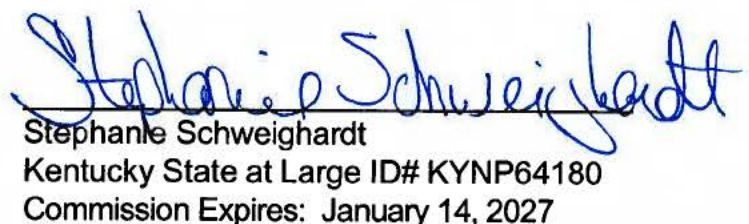 Stephanie Schweighardt
Stephanie Schweighardt
Kentucky State at Large ID# KYNP64180
Commission Expires: January 14, 2027